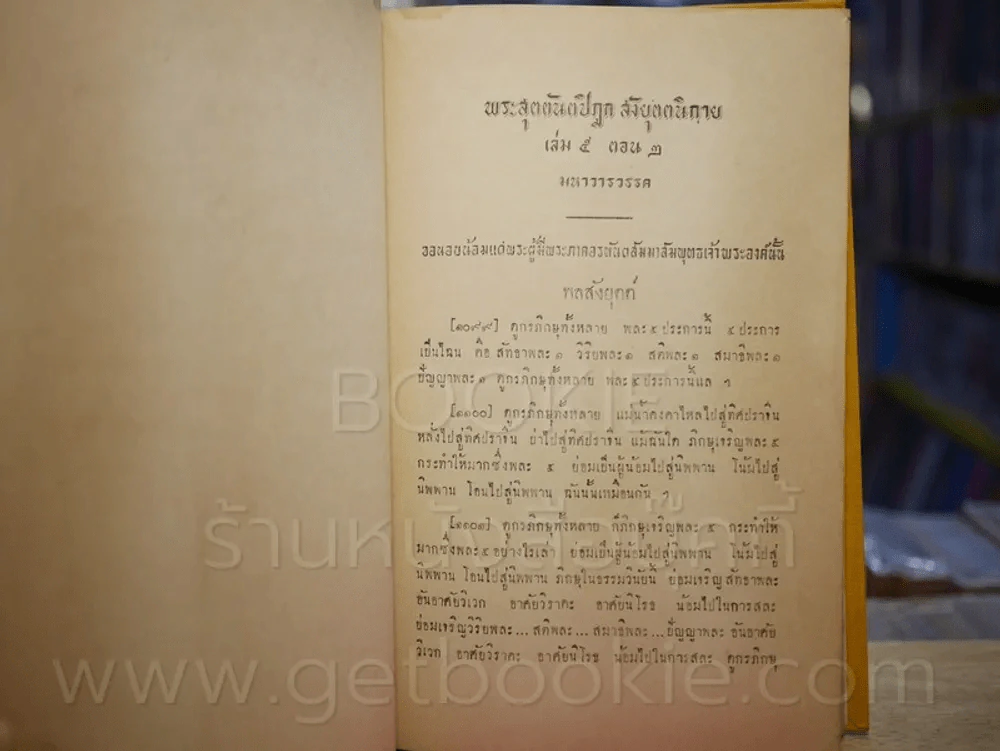 พระสุตตันตปิฎก สังยุตตนิกาย
เล่ม ๕ ตอน ๒
มหาวารวรรค
ขอนอบน้อมแด่พระผู้มีพระภาคอรหันตสัมมาสัมพุทธเจ้าพระองค์นั้น
พลสังยุตต์
[๑๐๙๙] ดูกรภิกษุทั้งหลาย พละ ๕ ประการนี้ ๕ ประการ
เป็นไฉน คือ สัทธาพละ ๑ วิริยพละ ๑ สติพละ ๑ สมาธิพละ ๑
ปัญญาพละ ๑ ดูกรภิกษุทั้งหลาย พละ ๕ ประการนี้แล ฯ
[๑๑๐๐] ดูกรภิกษุทั้งหลาย แม่น้ำคงคาไหลไปสู่ทิศปราจีน
หลั่งไปสู่ทิศปราจีน บ่าไปสู่ทิศปราจีน แม้ฉันใด ภิกษุเจริญพละ ๕
กระทำให้มากซึ่งพละ ๕ ย่อมเป็นผู้น้อมไปสู่นิพพาน โน้มไปสู่
นิพพาน โอนไปสู่นิพพาน ฉันนั้นเหมือนกัน ฯ
[๑๑๐๑] ดูกรภิกษุทั้งหลาย ก็ภิกษุเจริญพละ ๕ กระทำให้
มากซึ่งพละ ๕ อย่างไรเล่า ย่อมเป็นผู้น้อมไปสู่นิพพาน โน้มไปสู่
นิพพาน โอนไปสู่นิพพาน ภิกษุในธรรมวินัยนี้ ย่อมเจริญสัทธาพละ
อันอาศัยวิเวก อาศัยวิราคะ อาศัยนิโรธ น้อมไปในการสละ
ย่อมเจริญวิริยพละ ... สติพละ ... สมาธิพละ ... ปัญญาพละ อันอาศัย
วิเวก อาศัยวิราคะ อาศัยนิโรธ น้อมไปในการสละ ดูกรภิกษุ
BOOKIE
ร้านหนังสือบุ๊กกี้
www.getbookie.com